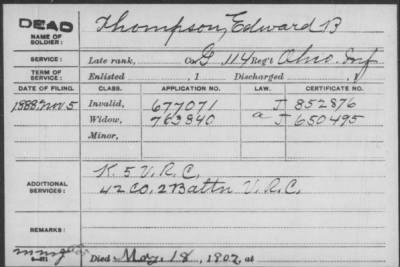 DEAD
NAME OF SOLDIER: Thompson, Edward B
SERVICE: Late rank, Co G 114 Reg't Ohio Inf
TERM OF SERVICE: Enlisted , 1 Discharged , 1
DATE OF FILING. CLASS. APPLICATION NO. LAW. CERTIFICATE NO.
1888 Nov 5 Invalid, 677071 J 852876
Widow, 763840 a J 650495
Minor,
ADDITIONAL SERVICES: K. 5 V.R.C.
42 Co. 2 Battn V.R.C.
REMARKS:
Died May 18, 1902, at